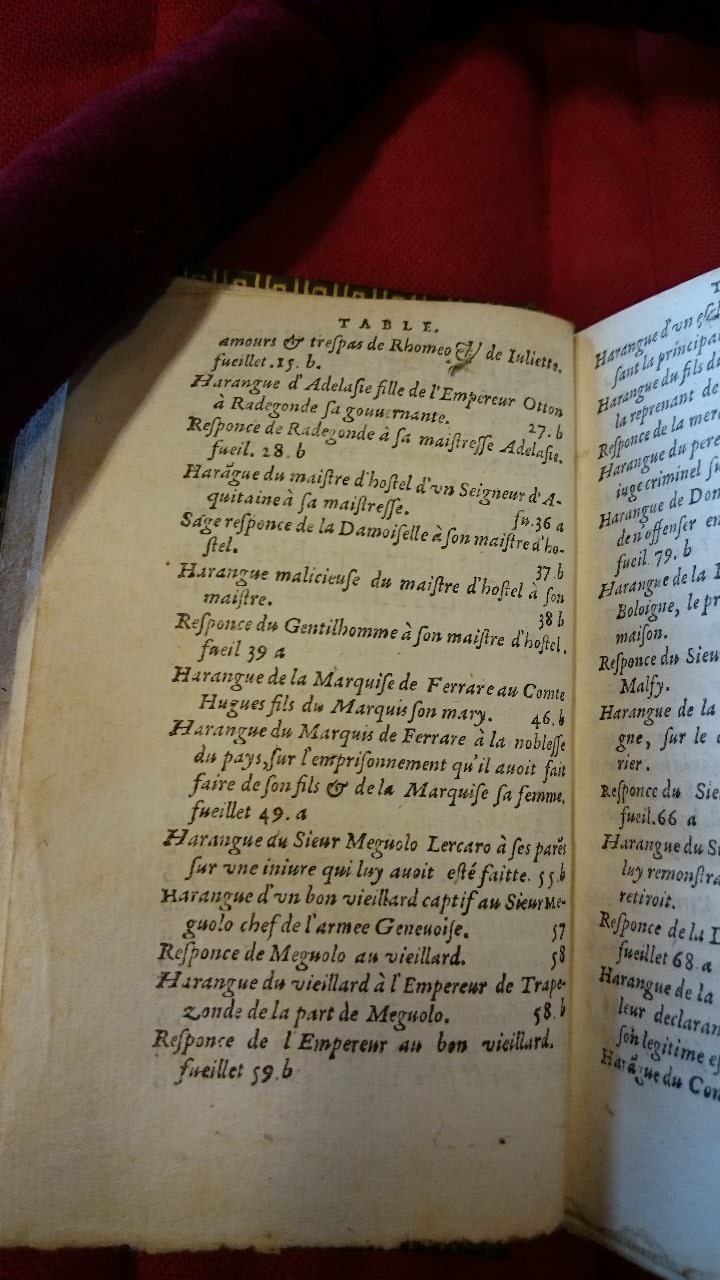 TABLE.
amours & treſpas de Rhomeo & de Iuliette.
fueillet.15. b.
Harangue d'Adelaſie fille de l'Empereur Otton
à Radegonde ſa gouuernante. 27.b
Reſponce de Radegonde à ſa maiſtreſſe Adelaſie.
fueil. 28.b
Harãgue du maiſtre d'hoſtel d'vn Seigneur d'A-
quitaine à ſa maiſtreſſe. fu.36 a
Sage reſponce de la Damoiſelle à ſon maiſtre d'ho-
ſtel. 37.b
Harangue malicieuſe du maiſtre d'hoſtel à ſon
maiſtre. 38 b
Reſponce du Gentilhomme à ſon maiſtre d'hoſtel.
fueil 39 a
Harangue de la Marquiſe de Ferrare au Comte
Hugues fils du Marquis ſon mary. 46.b
Harangue du Marquis de Ferrare à la nobleſſe
du pays, ſur l'empriſonnement qu'il auoit fait
faire de ſon fils & de la Marquiſe ſa femme.
fueillet 49. a
Harangue du Sieur Meguolo Lercaro à ſes parẽs
ſur vne iniure qui luy auoit eſté faitte. 55.b
Harangue d'vn bon vieillard captif au Sieur Me-
guolo chef de l'armee Geneuoiſe. 57
Reſponce de Meguolo au vieillard. 58
Harangue du vieillard à l'Empereur de Trape-
zonde de la part de Meguolo. 58.b
Reſponce de l'Empereur au bon vieillard.
fueillet 59.b
Harangue d'vn
ſant la principa
Harangue du fils d
la reprenant de
Reſponce de la mer
Harangue du pere
iuge criminel ſu
Harangue de Don
den offenſer en
fueil. 79. b
Harangue de la
Boloigne, le pr
maiſon.
Reſponce du Sieu
Malfy.
Harangue de la
gne, ſur le
rier.
Reſponce du Sie
fueil.66 a
Harangue du S
luy remonſtra
retiroit.
Reſponce de la D
fueillet 68. a
Harangue de la
leur declaran
ſon legitime eſ
Harãgue du Con